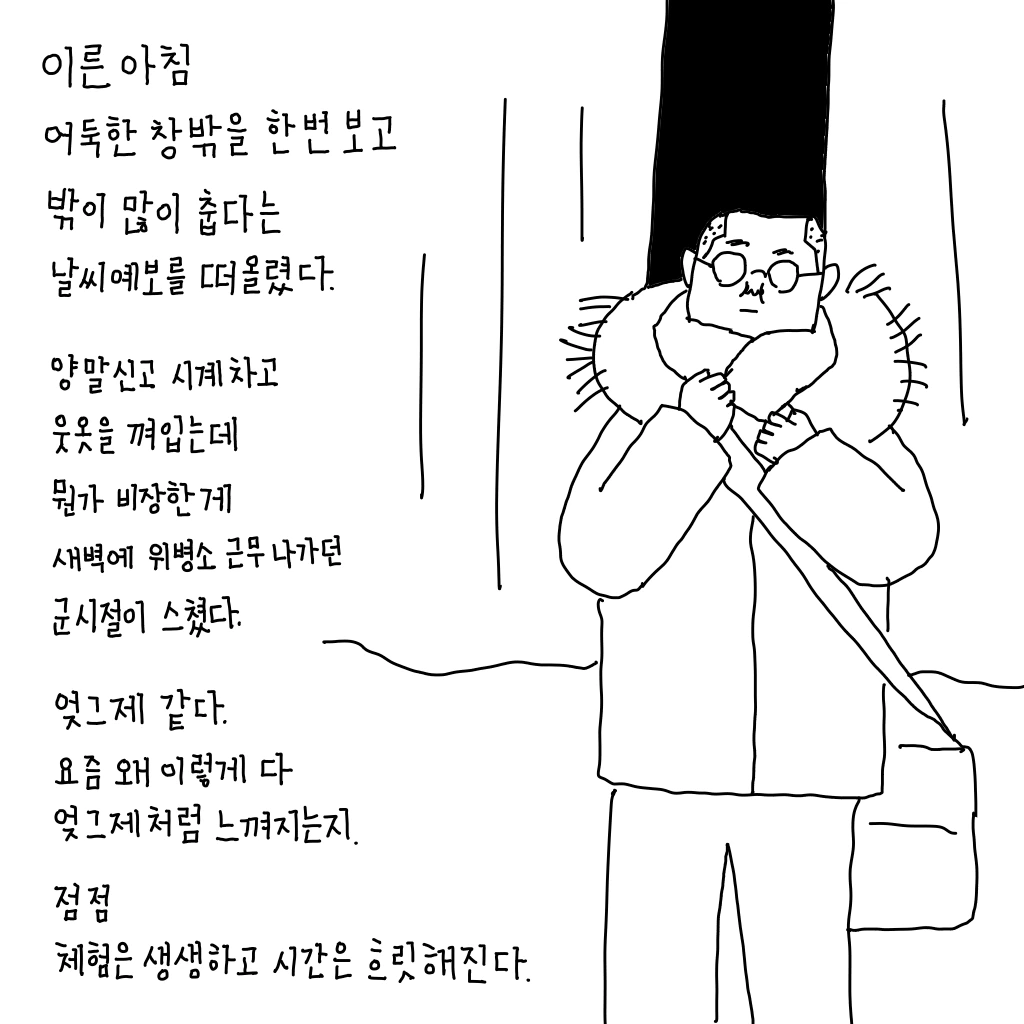 이른 아침
어둑한 창밖을 한번 보고
밖이 많이 춥다는
날씨예보를 떠올렸다.
양말신고 시계차고
웃옷을 껴입는데
뭔가 비장한게
새벽에 위병소 근무 나가던
군시절이 스쳤다.
엊그제 같다.
요즘 왜 이렇게 다
엊그제처럼 느껴지는지.
점점
체험은 생생하고 시간은 흐릿해진다.